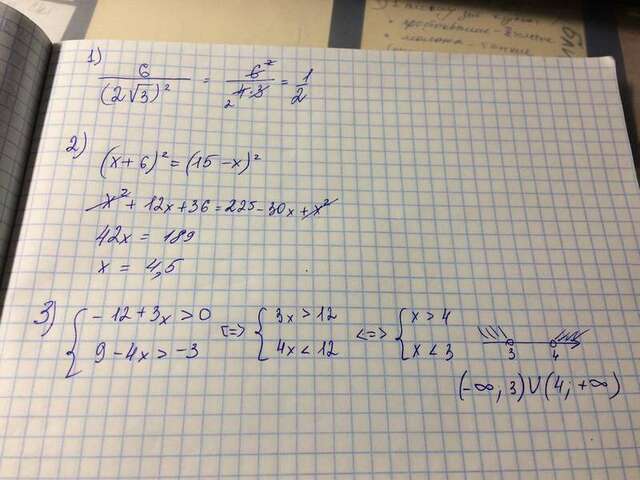 1)
6/(2√3)² = 6/4·3 = 1/2
2
2
2)
(x+6)² = (15-x)²
x² + 12x + 36 = 225 - 30x + x²
42x = 189
x = 4,5
3) { -12 + 3x > 0 <=> { 3x > 12 <=> { x > 4
{ 9 - 4x > -3 { 4x < 12 { x < 3
3 4
(-∞; 3) ∪ (4; +∞)